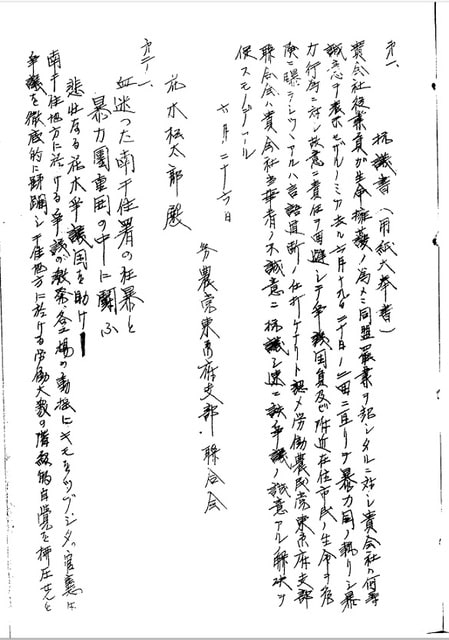 第一、
抗議書（用紙大奉書）
貴会社従業員が生命擁護ノ為メニ同盟罷業ヲ起シタルニ対シ貴会社ハ何等
誠意ヲ表示セザルノミカ去ル六月十九、二十日ノ二回ニ亘リテ暴力団ノ執リシ暴
力行為ニ対シ故意ニ責任ヲ回避シテ争議団員及ビ附近在住市民ノ生命ヲ危
険ニ曝ラシツヽアルハ言語道断ノ仕打ケナリト認メ労働農民党東京府支部
聯合会ハ貴会社当事者ノ不誠意ニ抗議シ速ニ該争議ノ誠意アル解決ヲ
促スモノデアル
六月二十六日
労農党東京府支部聯合会
花水松太郎殿
第二、
血迷つた南千住署の狂暴と
暴力團重囲の中に闘ふ
悲壮なる花水争議団を助け
南千住地方に於ける争議の教発、各工場の動揺にキモをツブシタ官憲は
争議を徹底的に蹂躙シ千住地方に於ける労働大衆の階級的自覚を押圧せんと